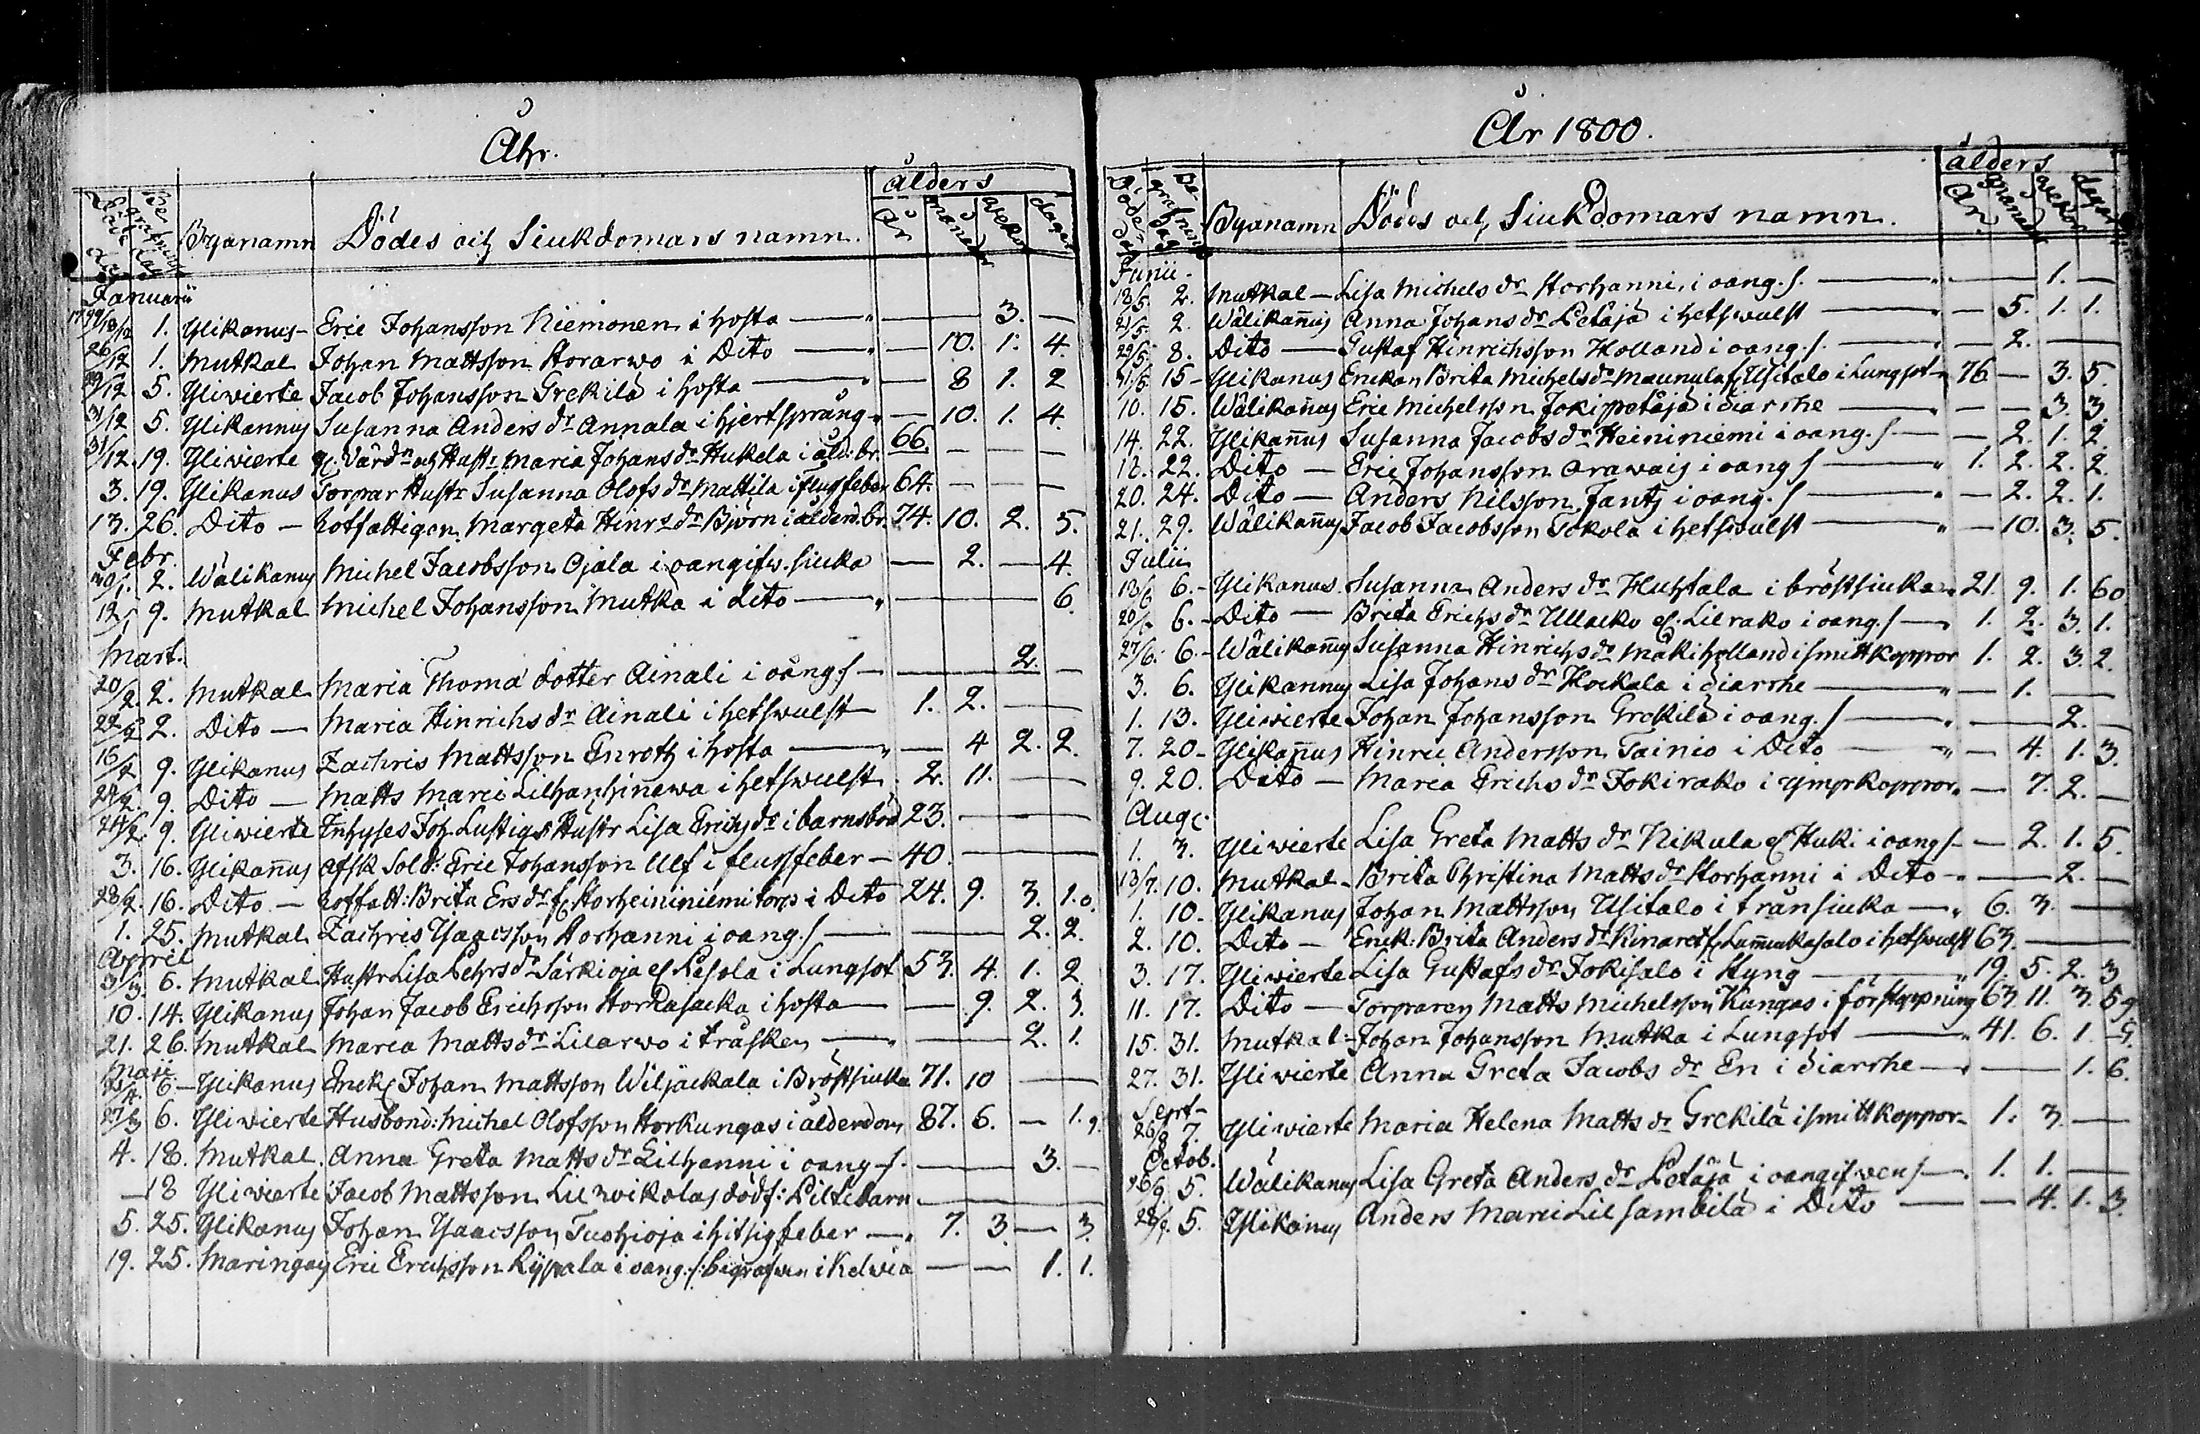 Åhr.
Döds dag Begrafnings dag Byanamn Dödes och Siukdomars namn. ålders År månader wekor dagar
Januarii
1799 18/12 1. Ylikanus - Eric Johansson Niemonen i hosta — " — — 3. —
26/12 1. Mutkal Johan Mattsson Storarwo i Dito — " — 10. 1. 4.
29/12 5. Yliwierte Jacob Johansson Grekilä i hosta — " — 8 1. 2
31/12 5. Ylikannus Susanna Anders dr Annala i hjertsprång " — 10. 1. 4.
31/12. 19. Yliwierte Hustr Maria Johans dr Hukela i åld: br. 66. — — —
3. 19. Ylikanus Torpar Hustr Susanna Olofs dr Mattila i flussfeber 64. — — —
13. 26. Dito — Rotfattigen Margeta Hinrs dr Björn i ålderd. br. 74. 10. 2. 5.
Febr.
30/1. 2. Wälikanus Michel Jacobsson Ojala i oangifw. siuka — 2. — 4.
12/1 9. Mutkal Michel Johansson Mutka i Dito — " — — — 6.
Mart.
20/2. 2. Mutkal Maria Thoma dotter Ainali i oång. s — — — 2. —
22/2 2. Dito — Maria Hinrichs dr Ainali i hetswulst 1. 2. — —
16/2 9. Ylikanus Zachris Mattsson Enroth i hosta — " — 4 2. 2.
24/2. 9. Dito — Matts Marci Lilhanhinewa i hetswulst 2. 11. — —
24/2. 9. Yliwierte Inhyses Joh. Lustigs Hustr Lisa Erichs dr i barnsbörd 23. — — —
3. 16. Ylikan̄us Afsk Sold: Eric Johansson Ulf i flussfeber — 40. — — —
23/2. 16. Dito — Rotfatt: Brita Ers dr fr Storheininiemi torp i Dito 24. 9. 3. 1.0.
1. 25. Mutkal Zachris Isacsson Storhanni i oang. s — — — 2. 2.
Appril
3/3. 6. Mutkal Hustr Lisa Pehrs dr Särkioja el Pesola i Lungsot 53. 4. 1. 2
10. 14. Ylikanus Johan Jacob Erichsson Storkasacka i hosta — — 9. 2. 3.
21. 26. Mutkal Maria Matts dr Lilarwo i tråsken — " — — 2. 1.
Maii
6 — Ylikanus Enck. Johan Mattsson Wiljackala i Bröstsiuka 71. 10 — —
27/3 6. Yliwierte Husbond: Michel Olofsson Storkungas i ålderdom 87. 6. — 1. 9.
4. 18. Mutkal. Anna Greta Matts dr Lilhanni i oang. s. — — 3. —
— 18 Yliwierte Jacob Mattsson Lilwikolas dödf: Piltebarn — — — —
5. 25. Ylikanus Johan Isaacsson Tuohioja i hitsigfeber — " 7. 3. — 3.
19. 25. Maringay Eric Erichsson Rypala i oang. s: begrafwen i Kelwiå — — 1. 1.
År 1800.
Döde dag Begrafning dag Byanamn Dödes och Siukdomars namn. ålders År. månader wekor dagar
Junii -
13/5. 2. Mutkal — Lisa Michels dr Storhanni, i oang. s. — " — — 1. —
21/5. 2. Wälikan̄us Anna Johans dr Petäjä i hetswulst — " — 5. 1. 1.
29/5. 8. Dito — Gustaf Hinrichsson Holland i oang. s. — " — 2. — —
31/5 15 — Ylikanus Enckan Brita Michels dr Maunula Ylitalo i Lungsot " 76 — 3. 5.
10. 15. Wälikan̄us Eric Michelsson Jokipetäjä i diarrhe — " — — 3. 3.
14. 22. Ylikan̄us Susanna Jacobs dr Heininiemi i oang. s — — 2. 1. 2.
12. 22. Dito — Eric Johansson Orawais i oang s — " 1. 2. 2. 2.
20. 24. Dito — Anders Nilsson Jantz i oang. s — " — 2. 2. 1.
21. 29. Wälikan̄us Jacob Jacobsson Tokola i hetswulst — " — 10. 3. 5.
Julii
13/6 6. — Ylikanus. Susanna Anders dr Huhtala i bröstsiuka " 21. 9. 1. 60
20/6 6. — Dito — Brita Erichs dr Ullacko el. Lilrako i oang. s — " 1. 2. 3. 1.
27/6. 6. — Wälikan̄us Susanna Hinrichs dr Mäkiholland i smittkoppor 1. 2. 3. 2.
3. 6. Ylikannus Lisa Johans dr Kockala i diarrhe — " — 1. — —
1. 13. Yliwierte Johan Johansson Grekilä i oang. s — " — — 2. —
7. 20 — Ylikan̄us Hinric Andersson Tainio i Dito — " — 4. 1. 3.
9. 20. Dito — Maria Erichs dr Jokirako i ympkoppor " — 7. 2. —
Aug:
1. 3. Yliwierte Lisa Greta Matts dr Nikula el Huki i oang s — — 2. 1. 5.
13/7. 10. Mutkal — Brita Christina Matts dr Storhanni i Dito — " — — 2. —
1. 10. Ylikanus Johan Mattsson Ylitalo i trånsiuka — " 6. 3. — —
2. 10. Dito — Enck: Brita Anders dr Kinaret Lam̄ukasalo i hetswulst 63. — — —
3. 17. Yliwierte Lisa Gustafs dr Jokisalo i Styng — " 19. 5. 2. 3
11. 17. Dito — Torparen Matts Michelsson Kangas i förstoppning 63. 11. 3. 5 9
15. 31. Mutkal: Johan Johansson Mutka i Lungsot — 41. 6. 1. — 9.
27. 31. Yliwierte Anna Greta Jacobs dr En i diarrhe — " — — 1. 6.
Sept —
26/8 7. Yliwierte Maria Helena Matts dr Grekilä i smittkoppor — 1. 3. — —
Octob.
16/9 5. Wälikanus Lisa Greta Anders dr Petäjä i oangifwen s — " 1. 1. — —
28/9. 5. Ylikanus Anders Marci Lilsambila i Dito — — 4. 1. 3.